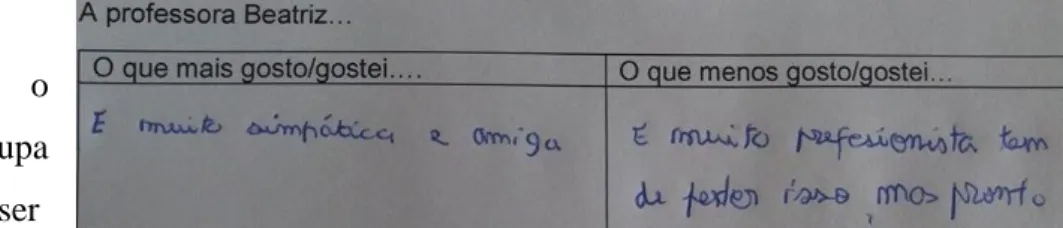 A professora Beatriz...
O que mais gosto/gostei....
O que menos gosto/gostei...
o
E muito simpática e amiga
E muito prefesionista tem
upa
de perder isso mas pronto
ser